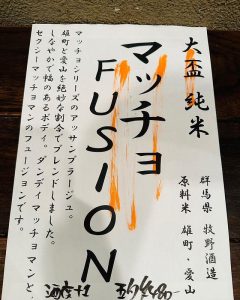 大盃 純米
群馬県 牧野酒造
原料米 雄町・愛山
マッチョ
FUSION
マッチョシリーズのアッサンブラージュ。
雄町と愛山を絶妙な割合でブレンドしました。
しなやかで幅のあるボディ。ダンディマッチョマンと、
セクシーマッチョマンのフュージョンです。
酒度+2